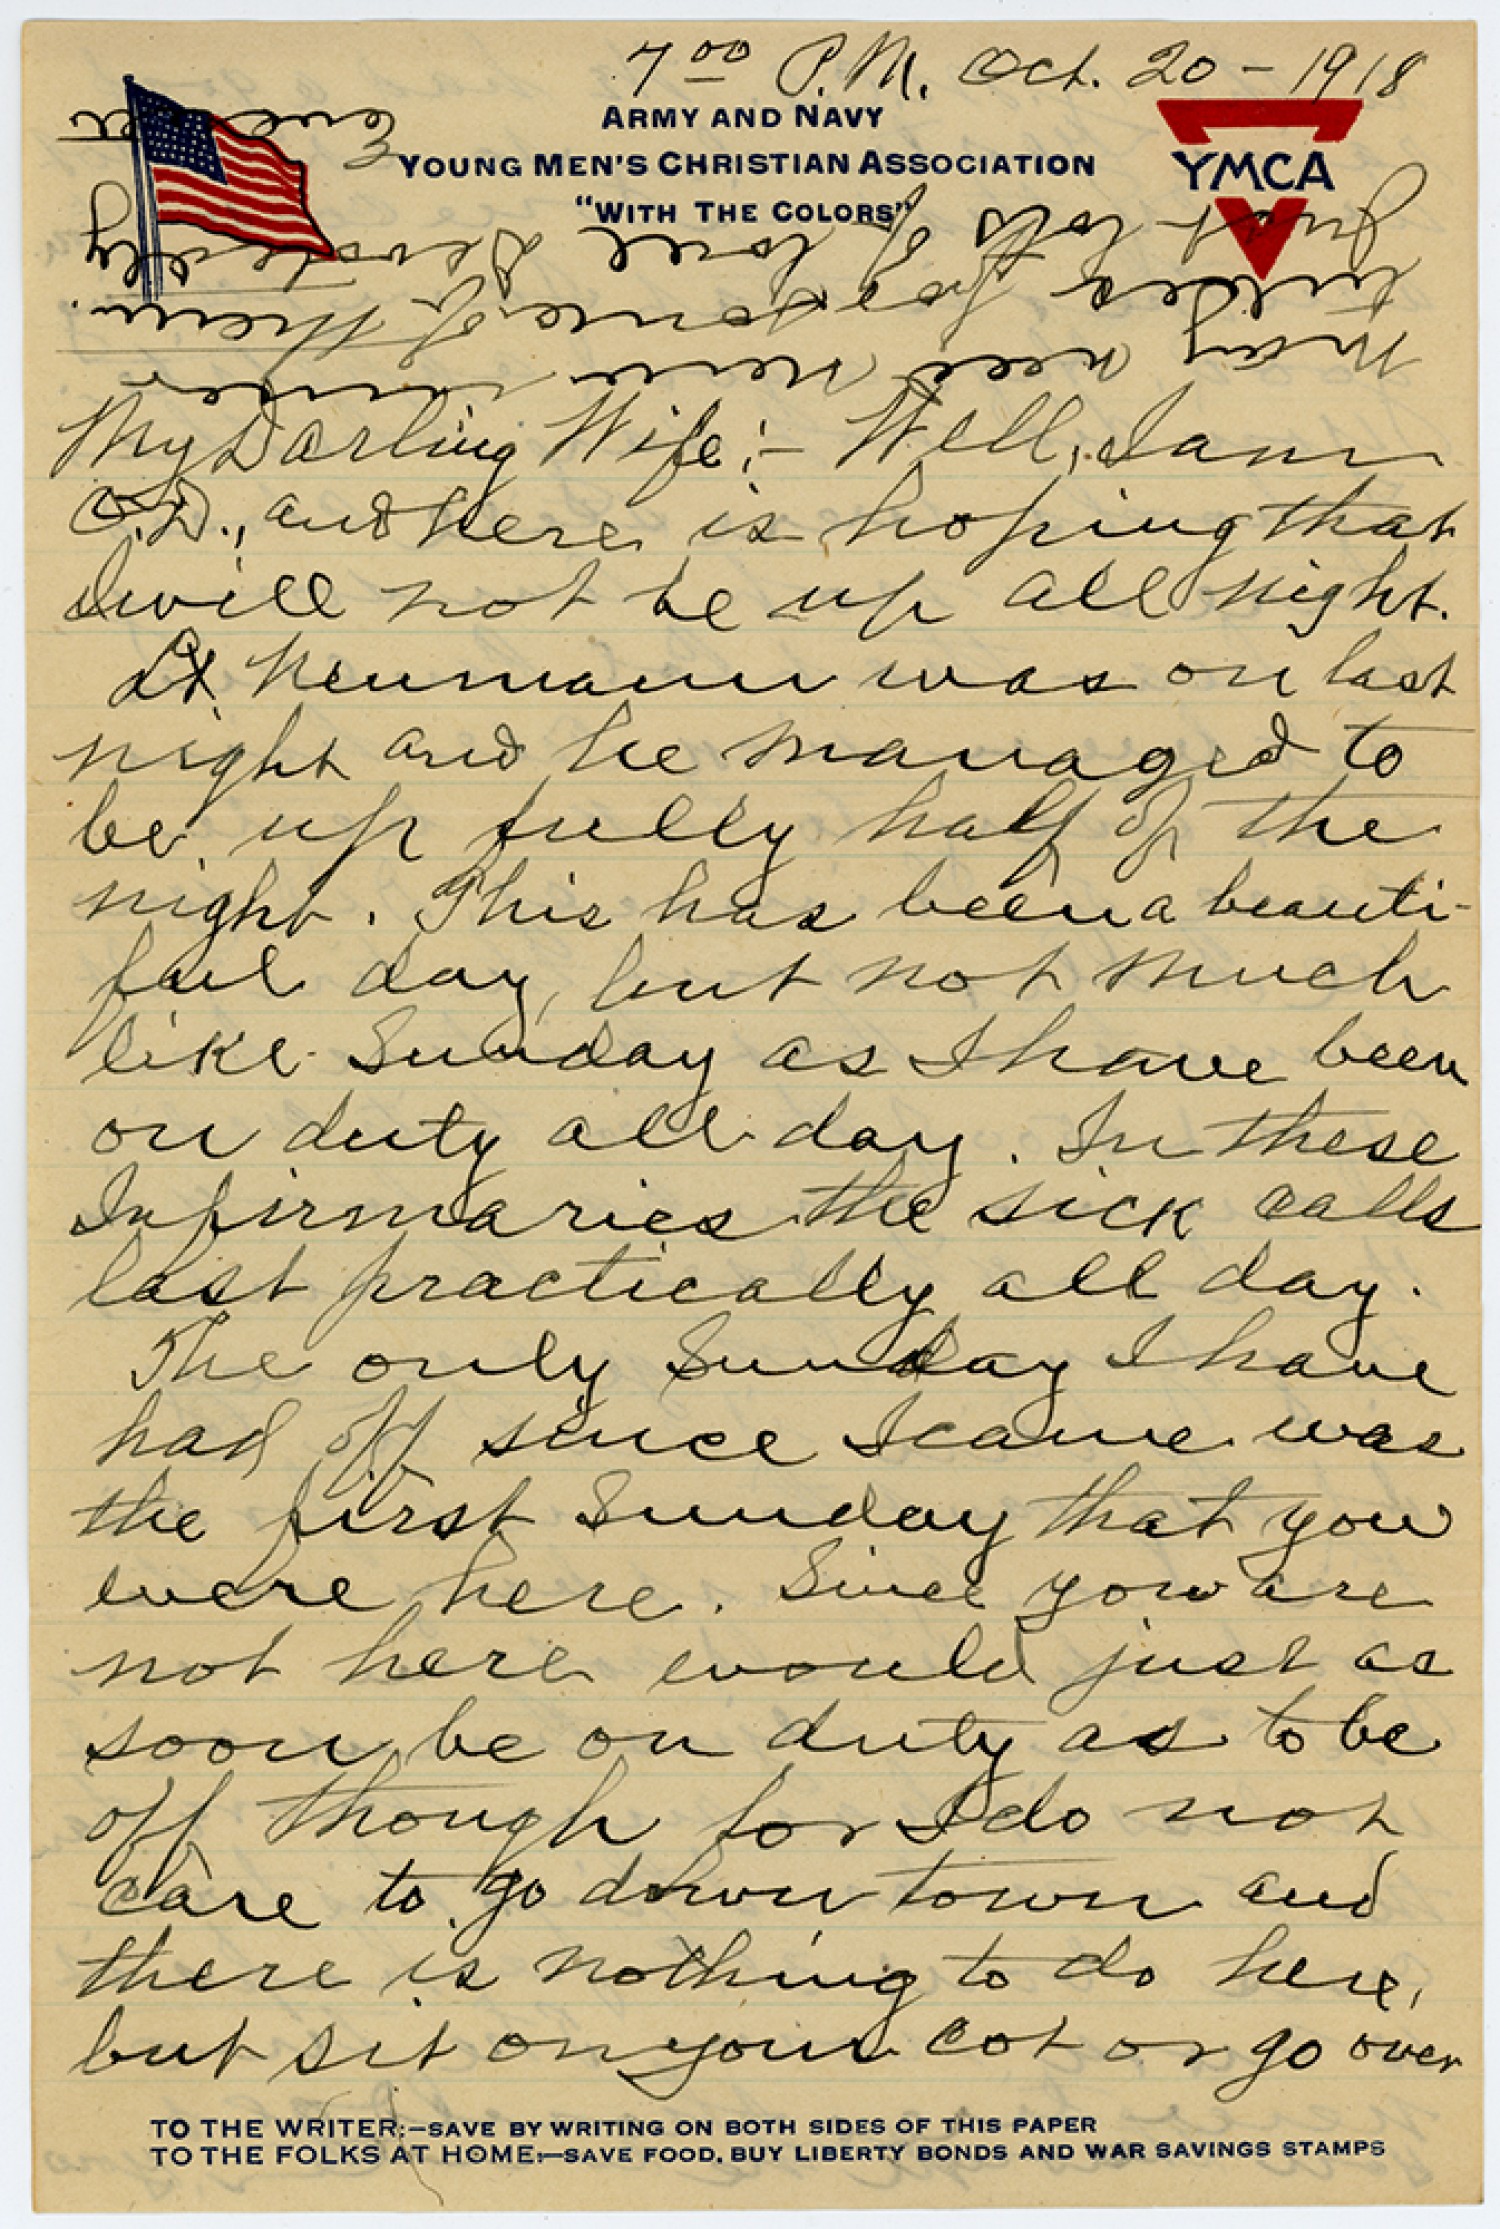 7 00 P.M. Oct. 20 - 1918
ARMY AND NAVY
YOUNG MEN'S CHRISTIAN ASSOCIATION
"WITH THE COLORS"
YMCA
My Darling Wife:- Well, I am
O.D., and here is hoping that
I will not be up all night.
Lt Neumann was on last
night and he managed to
be up fully half of the
night. This has been a beauti-
ful day, but not much
like Sunday as I have been
on duty all day. In these
Infirmaries the sick calls
last practically all day.
The only Sunday I have
had off since I came was
the first Sunday that you
were here. Since you are
not here would just as
soon be on duty as to be
off though for I do not
care to go down town and
there is nothing to do here,
but sit on your cot or go over
TO THE WRITER:—SAVE BY WRITING ON BOTH SIDES OF THIS PAPER
TO THE FOLKS AT HOME:—SAVE FOOD, BUY LIBERTY BONDS AND WAR SAVINGS STAMPS
may need new
for some of them.
Just lots of love Devotedly